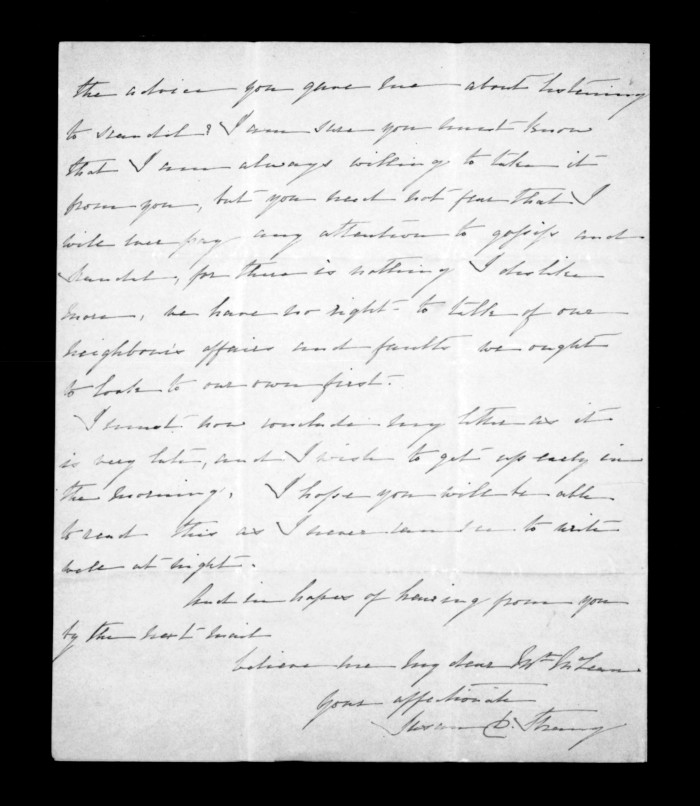 the advice you gave me about listening
to scandal? I am sure you must know
that I am always willing to take it
from you, but you need not fear that I
will ever pay any attention to gossip and
scandal, for there is nothing I dislike
more, we have no right to talk of our
neighbour's affairs and faults we ought
to look to our own first.
I must now conclude my letter as it
is very late, and I wish to get up early in
the morning. I hope you will be able
to read this as I never can see to write
well at night.
And in hopes of hearing from you
by the next mail
believe me my dear Mr McLean
your affectionate
Susan D. Strang